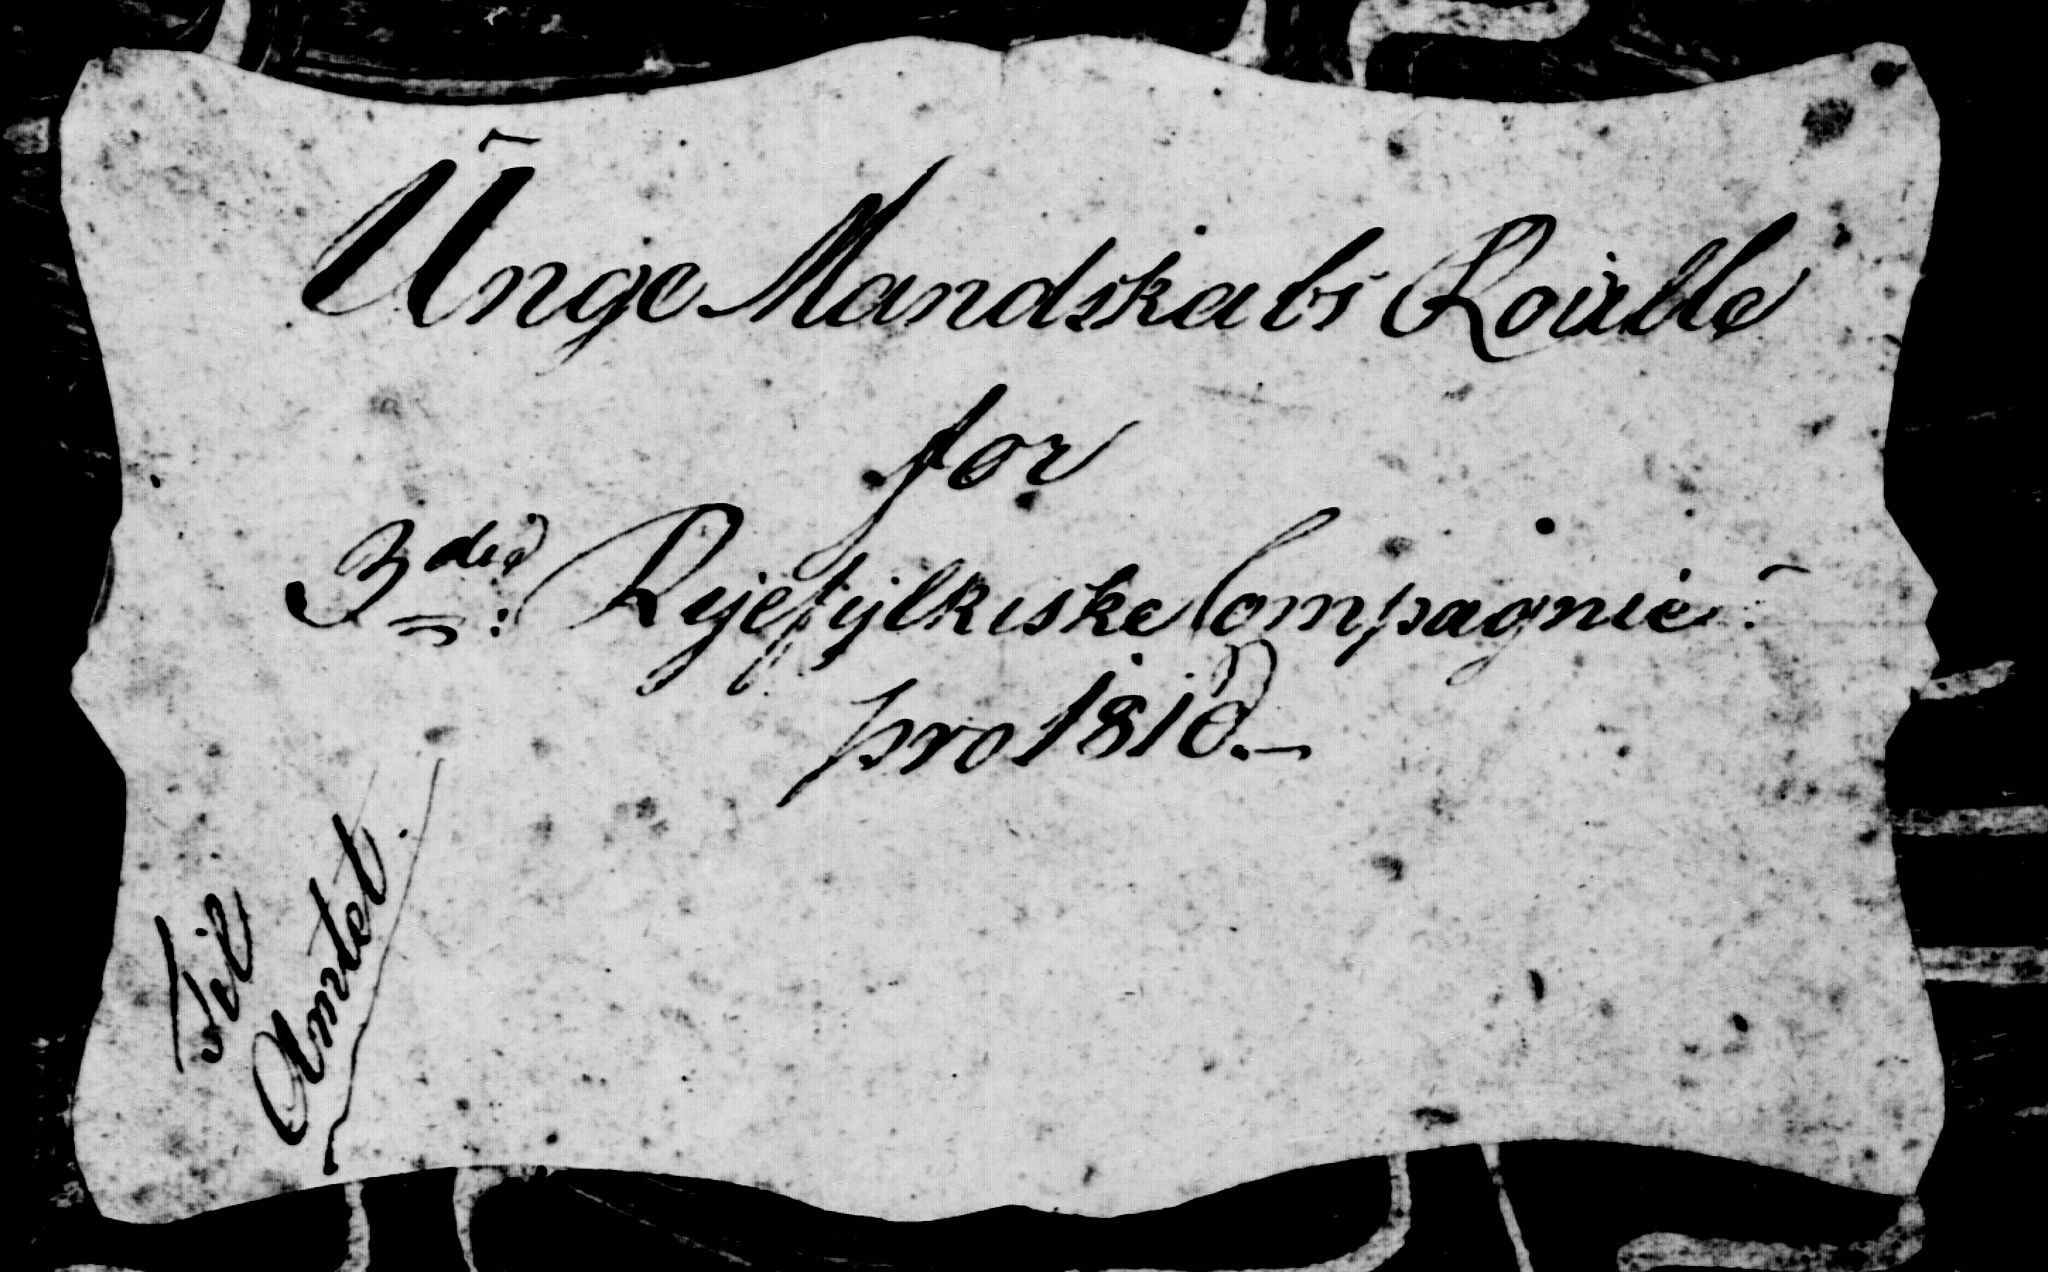 Unge Mandskabs Roulle
for
3die Ryefylkiske Compagnie
pro 1818.
Til
Amtet.